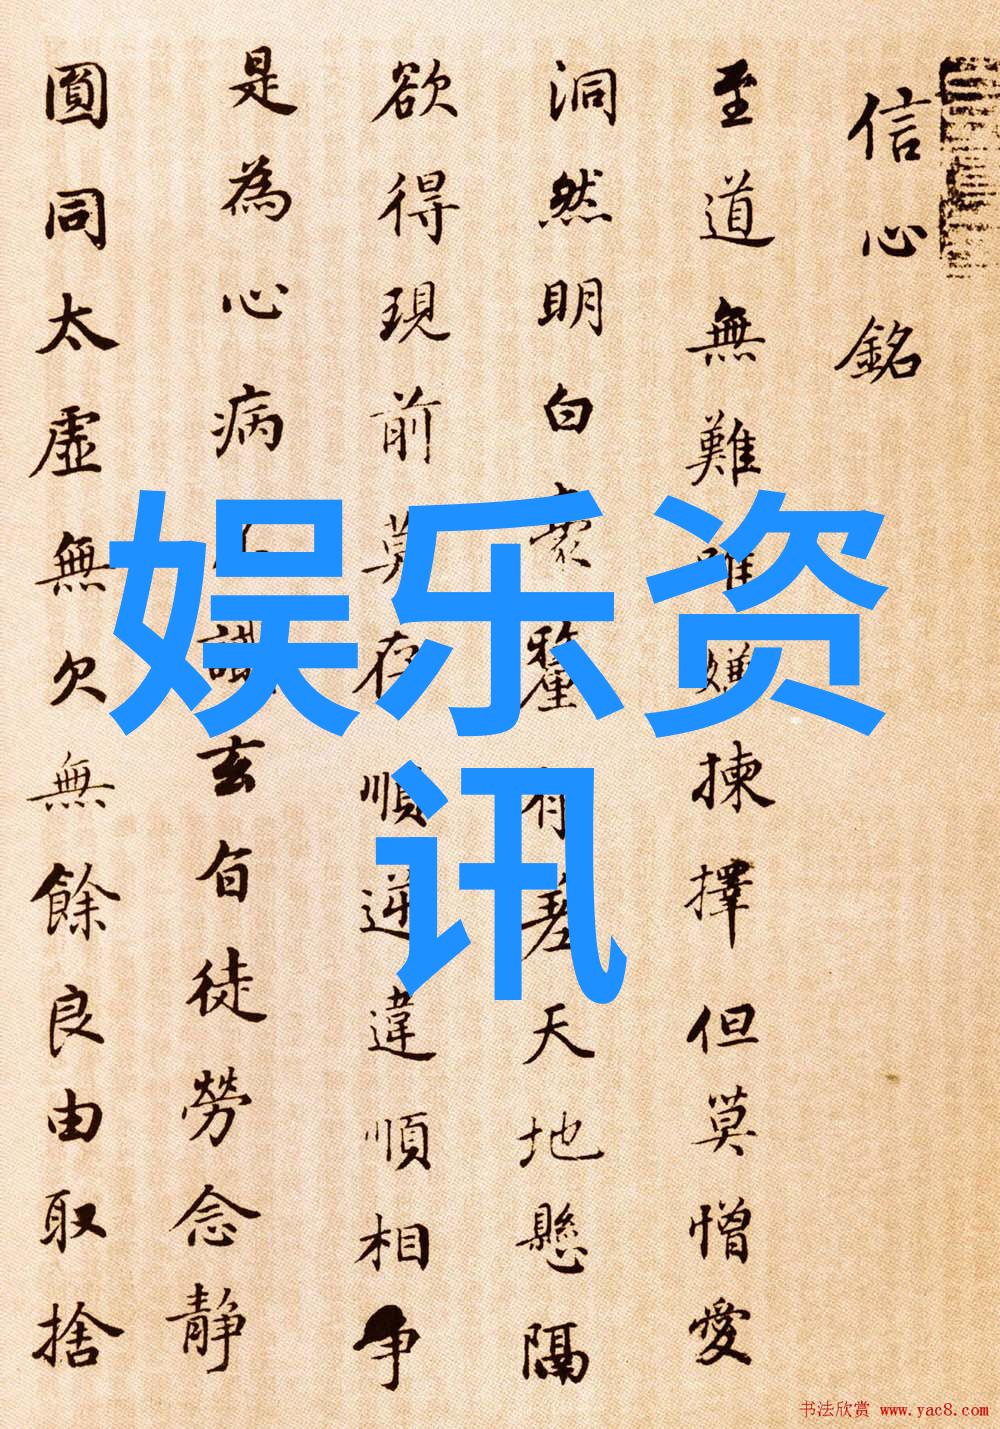 信心銘
至道無難唯嫌揀擇但莫憎愛
洞然明白釐有差天地懸隔
欲得現前莫存順逆違順相争
是為心病識玄旨徒勞念静
圓同太虚無欠無餘良由取捨
娱乐资
讯
书法欣赏 www.yac8.com